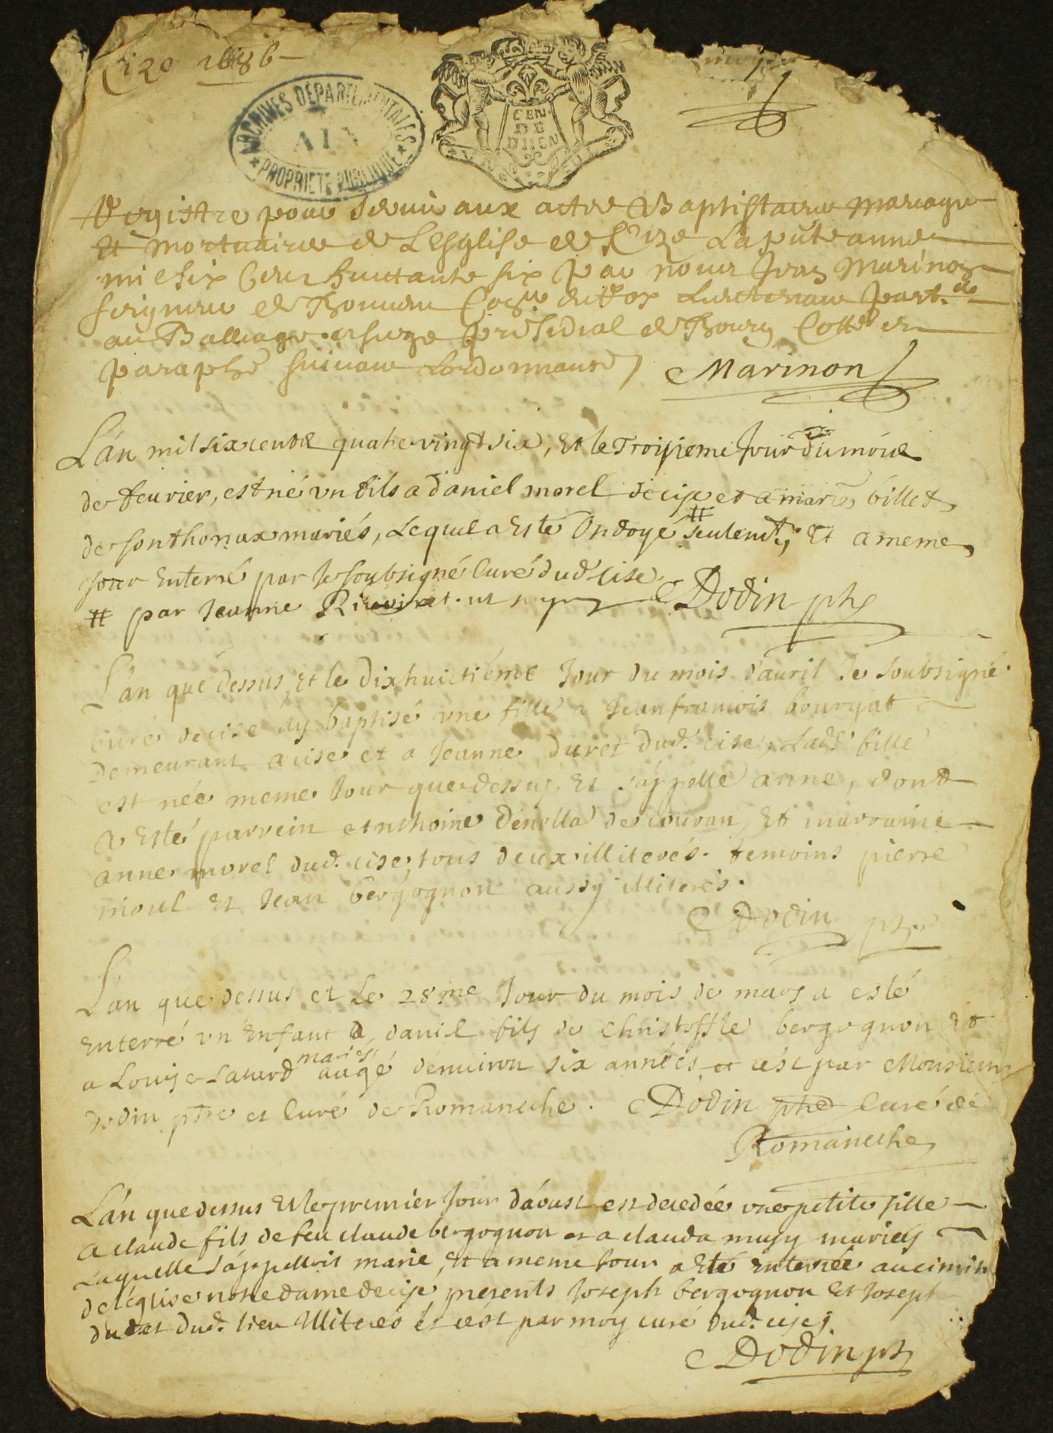 Cize 1686
ARCHIVES DÉPARTEMENTALES
AIN
PROPRIÉTÉ PUBLIQUE
GEN
DE
DIJON
Registre pour servir aux actes Baptistaires mariages
Et Mortuaires de L'Esglise de Cize La pnte année
mil six cens huittante six par nous Jean Marinon
seigneur de Lieutenant part.
au Balliage et siege presidial de Bourg Cotté et
paraphé suivant Lordonnance / Marinon
L'an mil six cents quatre vingt six, et le Troisieme Jour du mois
de feurier, est né vn fils a daniel morel de cise et a marie billet
de sonthonax mariés, Lequel a Esté Ondoyé # seulemt, Et a meme
jour Enterré par Je soubsigné Curé dud. Cise. Dodin ptre
# par Jeanne
L'an que dessus, et le dix huictiéme Jour du mois d'auril Je soubsigné
Curé de cise ay baptisé vne fille a Jean francois bourgat
demeurant a cise et a Jeanne duret dud. cise, Lad. fille
est née meme Jour que dessus, Et s'appelle anne, dont
a Esté parrein anthoine de Et marraine
anne morel dud. cise, tous deux illiterés. temoins pierre
morel Et Jean bergognon aussy illiterés.
Dodin ptre
L'an que dessus et Le 28me Jour du mois de mars a esté
enterré vn Enfant a daniel fils de Christoffle bergognon et
a Louise mariés augé denuiron six années, et c'est par Monsieur
dodin ptre et Curé de Romaneche. Dodin ptre Curé de
Romaneche
L'an que dessus et le premier Jour d'aoust est decedée vne petite fille
a claude fils de feu claude bergognon et a clauda musy mariés
Laquelle s'appelloit marie, et a meme Jour a Eté Enterrée au cimit
de leglise notre dame de cise presents Joseph bergognon Et Joseph
dudet dud. lieu Illiterés et c'est par moy curé dud. cise,
Dodin ptre